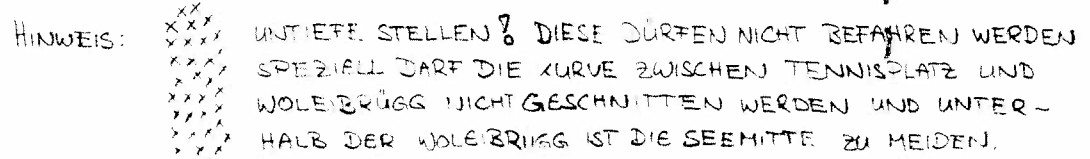 HINWEIS: UNTIEFE STELLEN! DIESE DÜRFEN NICHT BEFAHREN WERDEN
SPEZIELL DARF DIE KURVE ZWISCHEN TENNISPLATZ UND
WOLEIBRÜGG NICHT GESCHNITTEN WERDEN UND UNTER-
HALB DER WOLEIBRÜGG IST DIE SEEMITTE ZU MEIDEN.